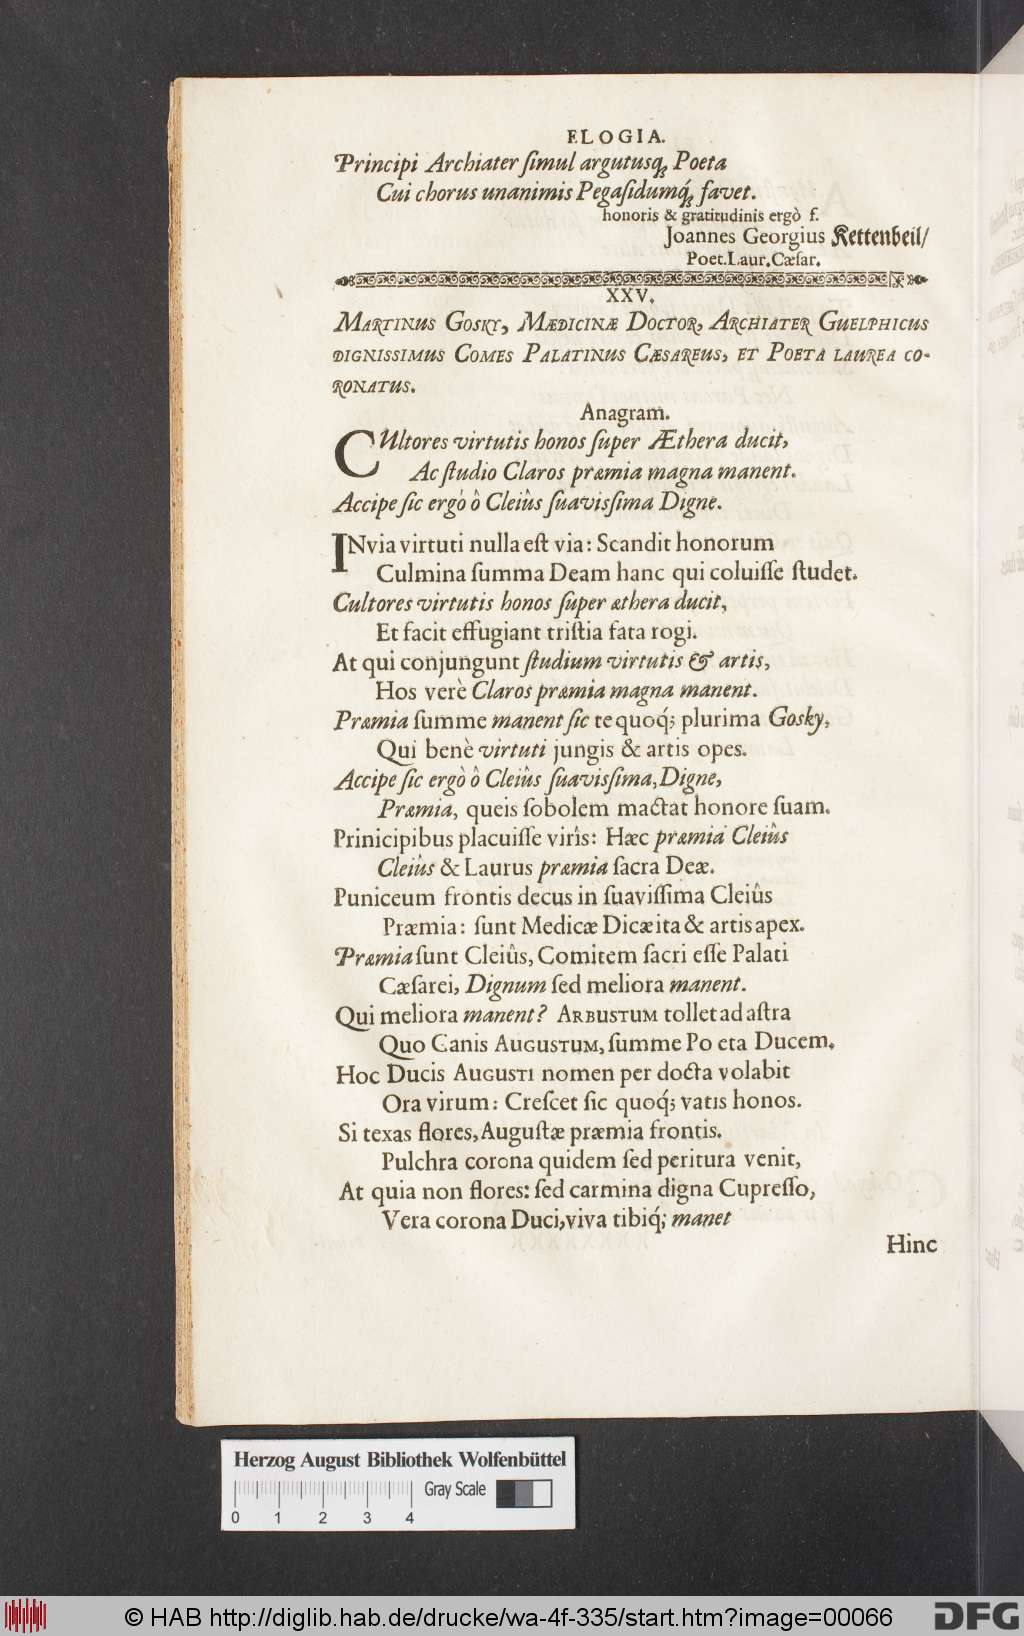 ELOGIA.
Principi Archiater ſimul argutusq́ꝫ Poeta
Cui chorus unanimis Pegaſidumq́ꝫ favet.
honoris & gratitudinis ergò f.
Joannes Georgius Kettenbeil/
Poet.Laur.Cæſar.
XXV.
MARTINUS GOSKY, MÆDICINÆ DOCTOR, ARCHIATER GUELPHICUS
DIGNISSIMUS COMES PALATINUS CÆSAREUS, ET POETA LAUREA CO-
RONATUS.
Anagram.
CUltores virtutis honos ſuper Æthera ducit,
Ac ſtudio Claros præmia magna manent.
Accipe ſic ergò ô Cleiûs ſuavisſima Digne.
INvia virtuti nulla eſt via: Scandit honorum
Culmina ſumma Deam hanc qui coluiſſe ſtudet.
Cultores virtutis honos ſuper æthera ducit,
Et facit effugiant triſtia fata rogi.
At qui conjungunt ſtudium virtutis & artis,
Hos verè Claros præmia magna manent.
Præmia ſumme manent ſic te quoq́ꝫ plurima Gosky,
Qui benè virtuti jungis & artis opes.
Accipe ſic ergò ô Cleiûs ſuavisſima, Digne,
Præmia, queis ſobolem mactat honore ſuam.
Prinicipibus placuiſſe virîs: Hæc præmia Cleiûs
Cleiûs & Laurus præmia ſacra Deæ.
Puniceum frontis decus in ſuaviſſima Cleiûs
Præmia: ſunt Medicæ Dicæita & artis apex.
Præmia ſunt Cleiûs, Comitem ſacri eſſe Palati
Cæſarei, Dignum ſed meliora manent.
Qui meliora manent? ARBUSTUM tollet ad aſtra
Quo Canis AUGUSTUM, ſumme Po eta Ducem.
Hoc Ducis AUGUSTI nomen per docta volabit
Ora virum: Creſcet ſic quoq́ꝫ vatis honos.
Si texas flores, Auguſtæ præmia frontis.
Pulchra corona quidem ſed peritura venit,
At quia non flores: ſed carmina digna Cupreſſo,
Vera corona Duci, viva tibiq́ꝫ manet
Hinc
Herzog August Bibliothek Wolfenbüttel
Gray Scale
0 1 2 3 4
© HAB http://diglib.hab.de/drucke/wa-4f-335/start.htm?image=00066
DFG